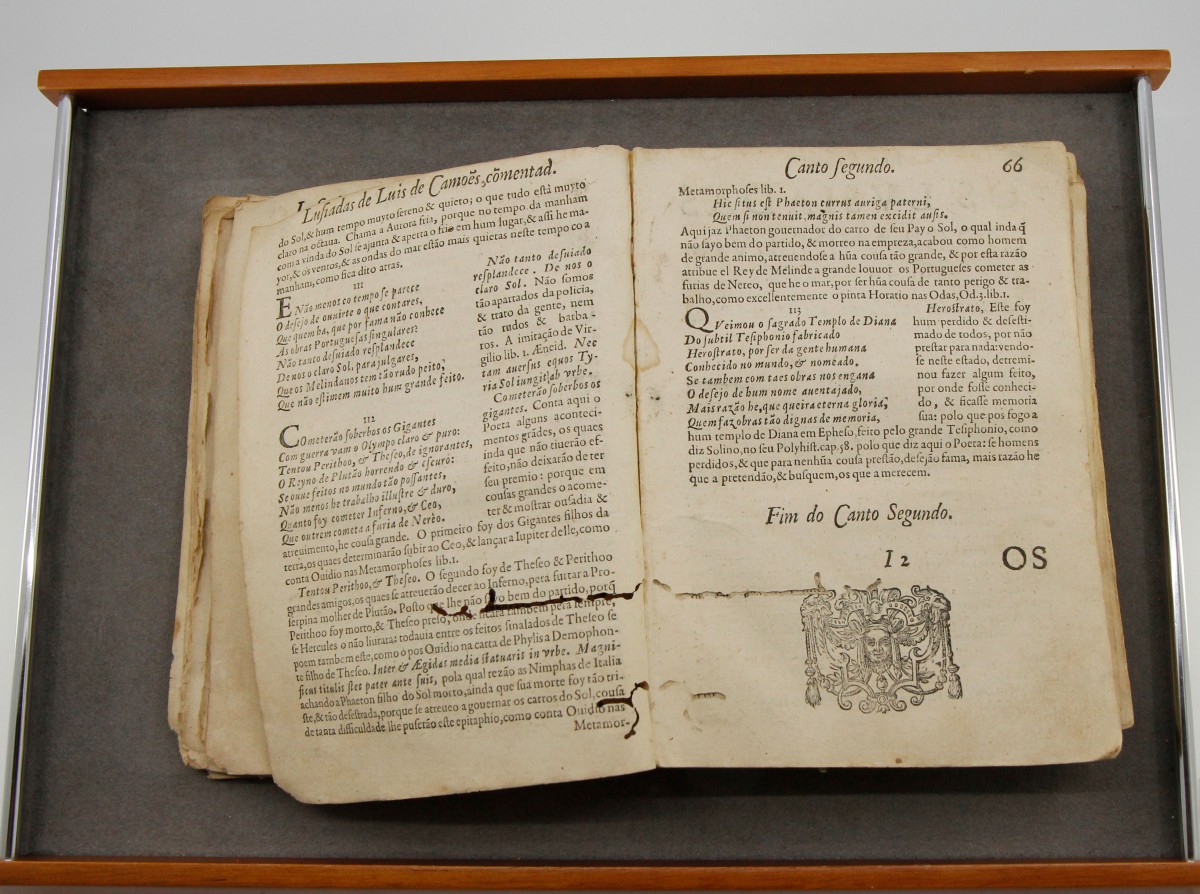 Lusiadas de Luis de Camoẽs, cõmentad.
do Sol, & hum tempo muyto sereno & quieto; o que tudo està muyto
claro na octaua. Chama a Aurora fria, porque no tempo da manham
com a vinda do Sol se ajunta & aperta o frio em hum lugar, & assi he ma-
yor, & os ventos, & as ondas do mar estão mais quietas neste tempo co a
manham, como fica dito atras.
111
E Não menos co tempo se parece
O desejo de ouuirte o que contares,
Que quem ha, que por fama não conhece
As obras Portuguesas singulares?
Não tanto desuiado resplandece
De nos o claro Sol, para julgares,
Que os Melindanos tem tão rudo peito,
Que não estimem muito hum grande feito.
Não tanto desuiado
resplandece. De nos o
claro Sol. Não somos
tão apartados da policia,
& trato da gente, nem
tão rudos & barba-
ros. A imitação de Vir-
gilio lib. 1. Æneid. Nec
tam auersus equos Ty-
ria Sol iungit ab vrbe.
Cometerão soberbos os
gigantes. Conta aqui o
Poeta alguns aconteci-
mentos grãdes, os quaes
inda que não tiuerão ef-
feito, não deixarão de ter
seu premio: porque em
cousas grandes o acome-
ter & mostrar ousadia &
112
COmeterão soberbos os Gigantes
Com guerra vam o Olympo claro & puro:
Tentou Perithoo, & Theseo, de ignorantes,
O Reyno de Plutão horrendo & escuro:
Se ouue feitos no mundo tão possantes,
Não menos he trabalho illustre & duro,
Quanto foy cometer Inferno, & Ceo,
Que outrem cometa a furia de Nereo.
atreuimento, he cousa grande. O primeiro foy dos Gigantes filhos da
terra, os quaes determinarão subir ao Ceo, & lançar a Iupiter delle, como
conta Ouidio nas Metamorphoses lib.1.
Tentou Perithoo, & Theseo. O segundo foy de Theseo & Perithoo
grandes amigos, os quaes se atreuerão decer ao Inferno, pera furtar a Pro-
serpina molher de Plutão. Posto que lhe não sayo bem do partido, porq̃
Perithoo foy morto, & Theseo preso, onde ficara tambem pera sempre,
se Hercules o não liurara: todauia entre os feitos sinalados de Theseo se
poem tambem este, como o pos Ouidio na carta de Phylis a Demophon-
te filho de Theseo. Inter & Ægidas media statuaris in vrbe. Magni-
ficus titulis stet pater ante suis, pola qual rezão as Nimphas de Italia
achando a Phaeton filho do Sol morto, ainda que sua morte foy tão tri-
ste, & tão desestrada, porque se atreueo a governar os carros do Sol, cousa
de tanta difficuldade lhe puserão este epitaphio, como conta Ouidio nas
Metamor-
Canto segundo. 66
Metamorphoses lib. 1.
Hic situs est Phaeton currus auriga paterni,
Quem si non tenuit, magnis tamen excidit ausis.
Aqui jaz Phaeton gouernador do carro de seu Pay o Sol, o qual inda q̃
não sayo bem do partido, & morreo na empreza, acabou como homem
de grande animo, atreuendose a hũa cousa tão grande, & por esta razão
atribue el Rey de Melinde a grande louuor os Portugueses cometer as
furias de Nereo, que he o mar, por ser hũa cousa de tanto perigo & tra-
balho, como excellentemente o pinta Horatio nas Odas, Od.3.lib.1.
113
QVeimou o sagrado Templo de Diana
Do subtil Tesiphonio fabricado
Herostrato, por ser da gente humana
Conhecido no mundo, & nomeado.
Se tambem com taes obras nos engana
O desejo de hum nome auentajado,
Mais razão he, que queira eterna gloria,
Quem faz obras tão dignas de memoria,
Herostrato, Este foy
hum perdido & desesti-
mado de todos, por não
prestar para nada: vendo-
se neste estado, detremi-
nou fazer algum feito,
por onde fosse conheci-
do, & ficasse memoria
sua: polo que pos fogo a
hum templo de Diana em Epheso, feito pelo grande Tesiphonio, como
diz Solino, no seu Polyhist. cap. 58. polo que diz aqui o Poeta: se homens
perdidos, & que para nenhũa cousa prestão, desejão fama, mais razão he
que a pretendão, & busquem, os que a merecem.
Fim do Canto Segundo.
I 2 OS